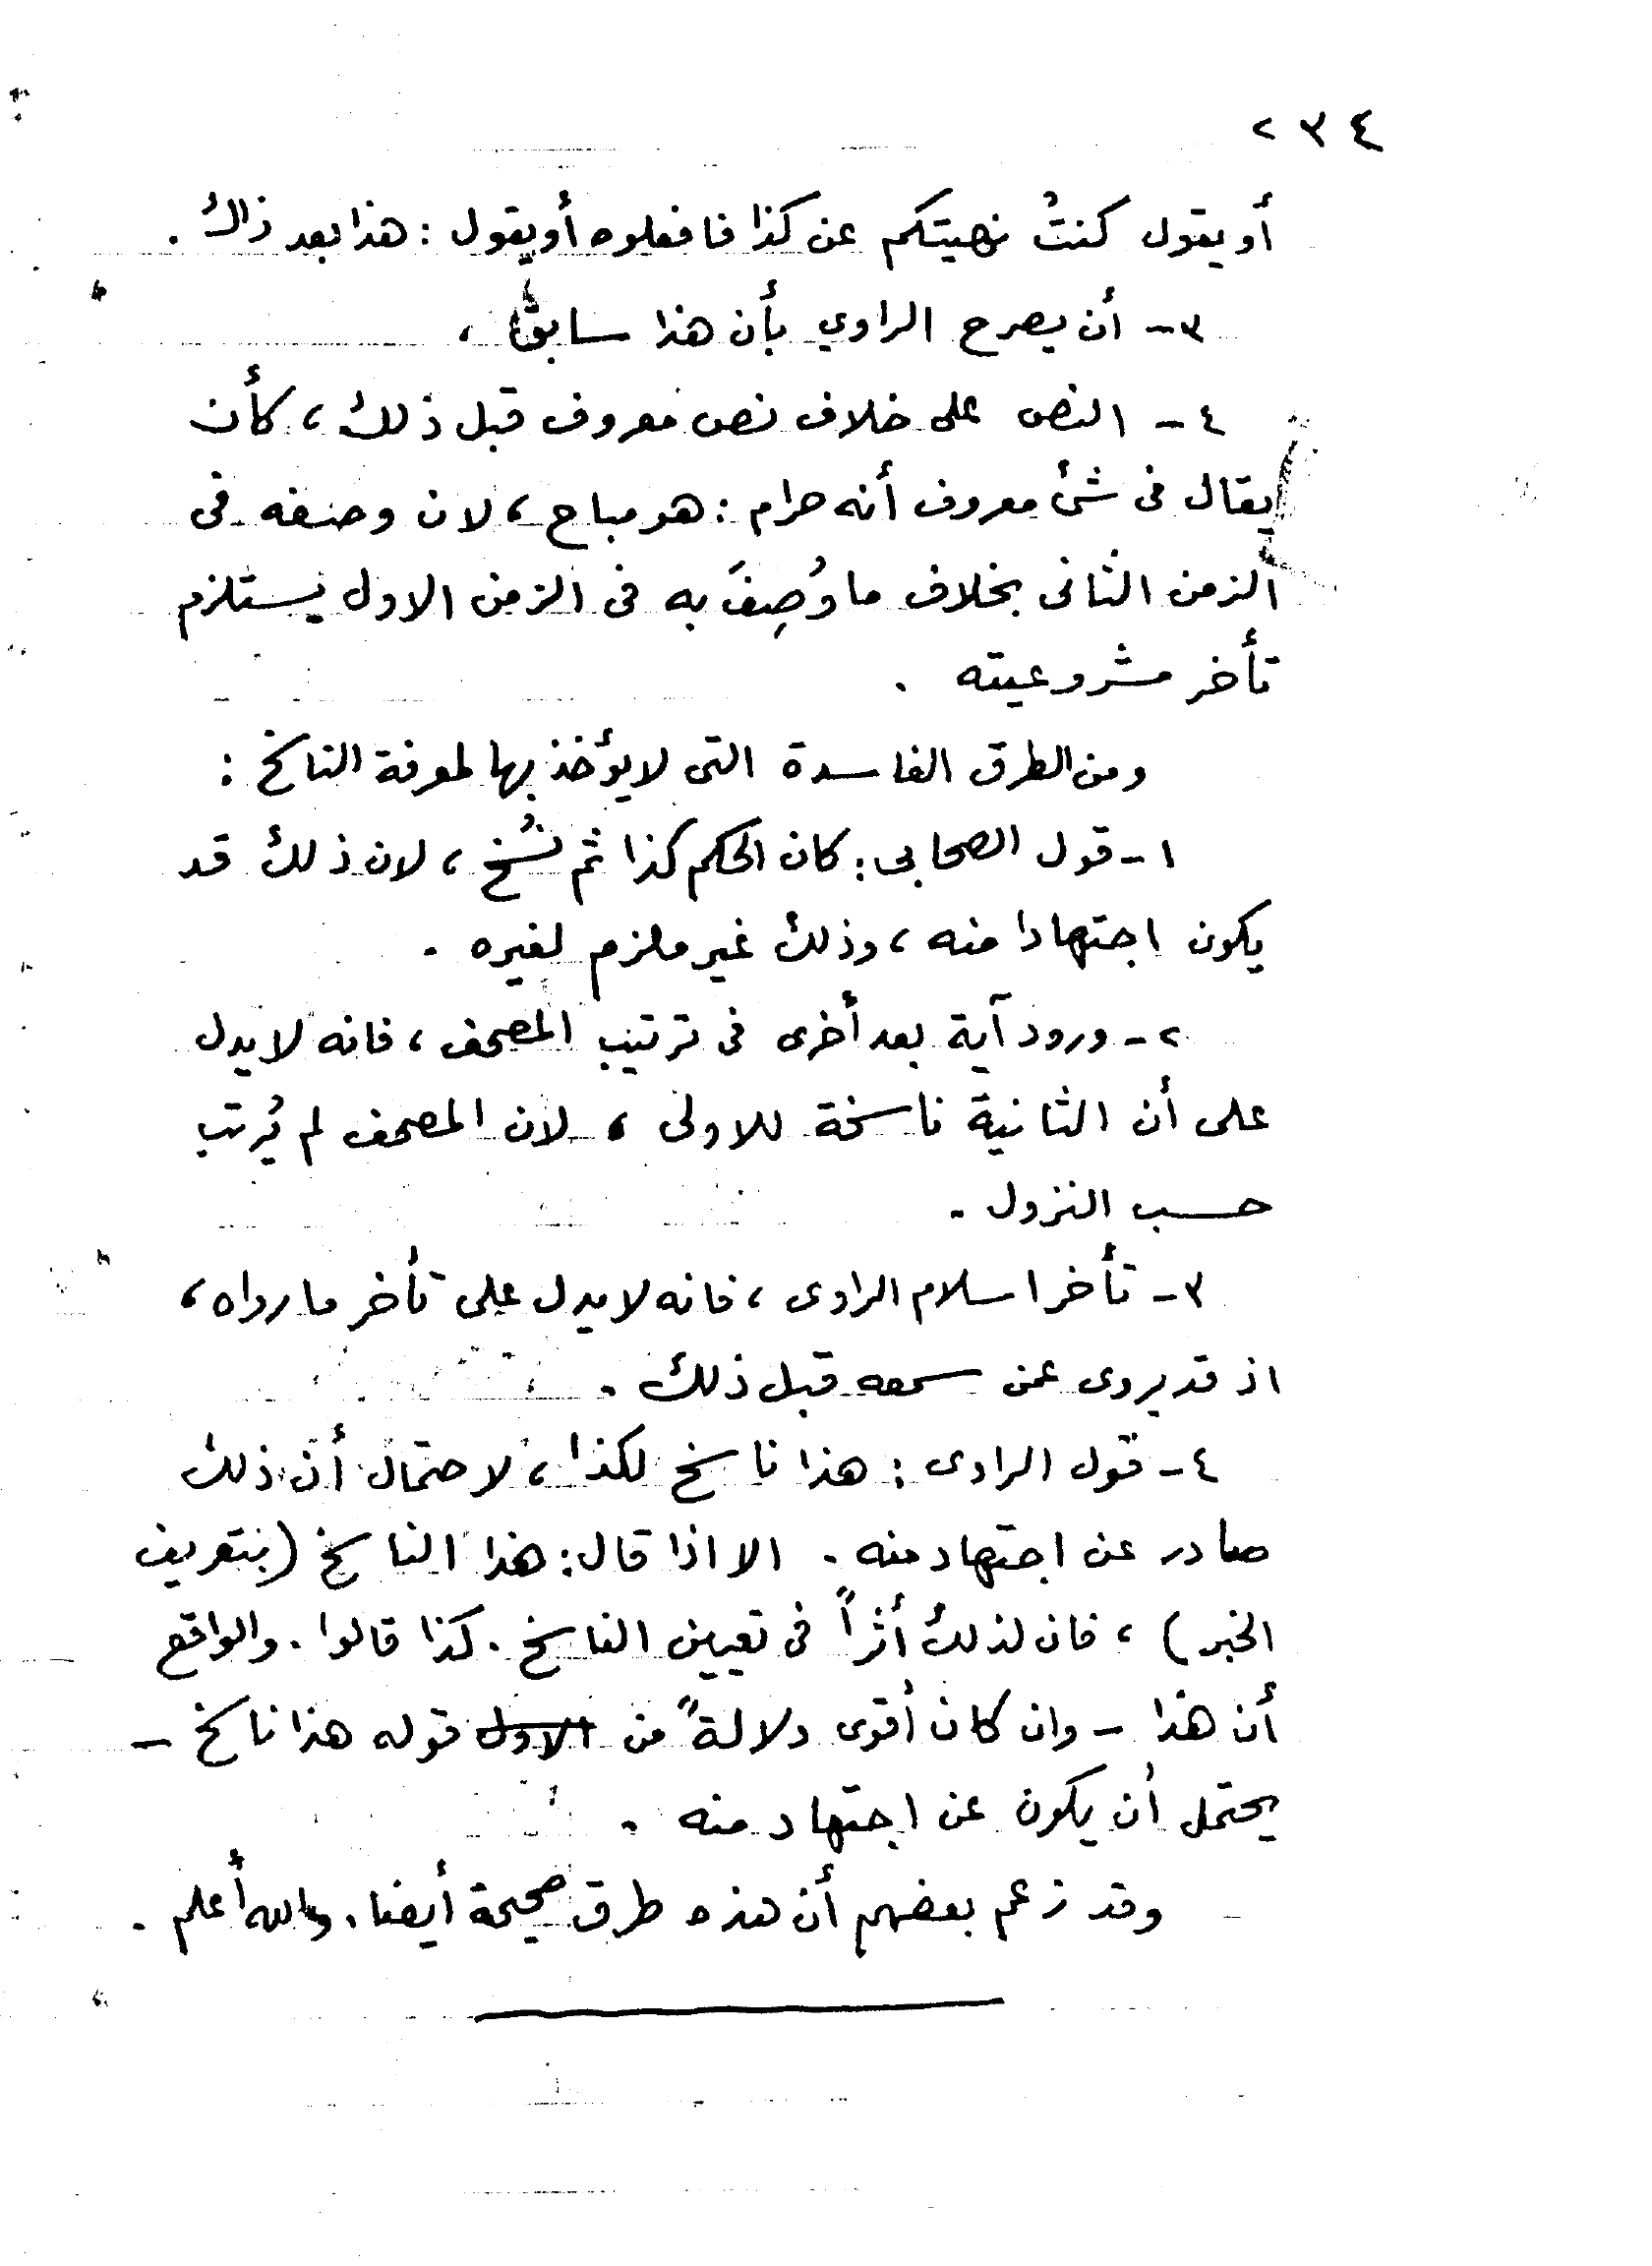 ٢٣٤
أو يقول كنتُ نهيتكم عن كذا فافعلوه أو يقول : هذا بعد ذاك .
٣- أن يصرح الراوي بأن هذا سابق ،
٤ - النص على خلاف نص معروف قبل ذلك ، كأن
يقال فى شئ معروف أنه حرام : هو مباح ، لان وصفه فى
الزمن الثانى بخلاف ما وُصِفَ به فى الزمن الاول يستلزم
تأخر مشروعيته .
ومن الطرق الفاسدة التى لا يؤخذ بها لمعرفة الناسخ :
١ - قول الصحابى : كان الحكم كذا ثم نُسخ ، لان ذلك قد
يكون اجتهادا منه ، وذلك غير ملزم لغيره .
٢ - ورود آية بعد أخرى فى ترتيب المصحف ، فانه لا يدل
على أن الثانية ناسخة للاولى ، لان المصحف لم يُرتب
حسب النزول .
٣ - تأخر اسلام الراوى ، فانه لا يدل على تأخر ما رواه ،
اذ قد يروى عمن سمعه قبل ذلك .
٤ - قول الراوى : هذا ناسخ لكذا ، لاحتمال أن ذلك
صادر عن اجتهاد منه . الا اذا قال : هذا الناسخ (بتعريف
الخبر) ، فان لذلك أثراً فى تعيين الناسخ . كذا قالوا . والواقع
أن هذا - وان كان أقوى دلالةً من الاول قوله هذا ناسخ -
يحتمل أن يكون عن اجتهاد منه .
وقد زعم بعضهم أن هذه طرق صحيحة أيضا . والله أعلم .